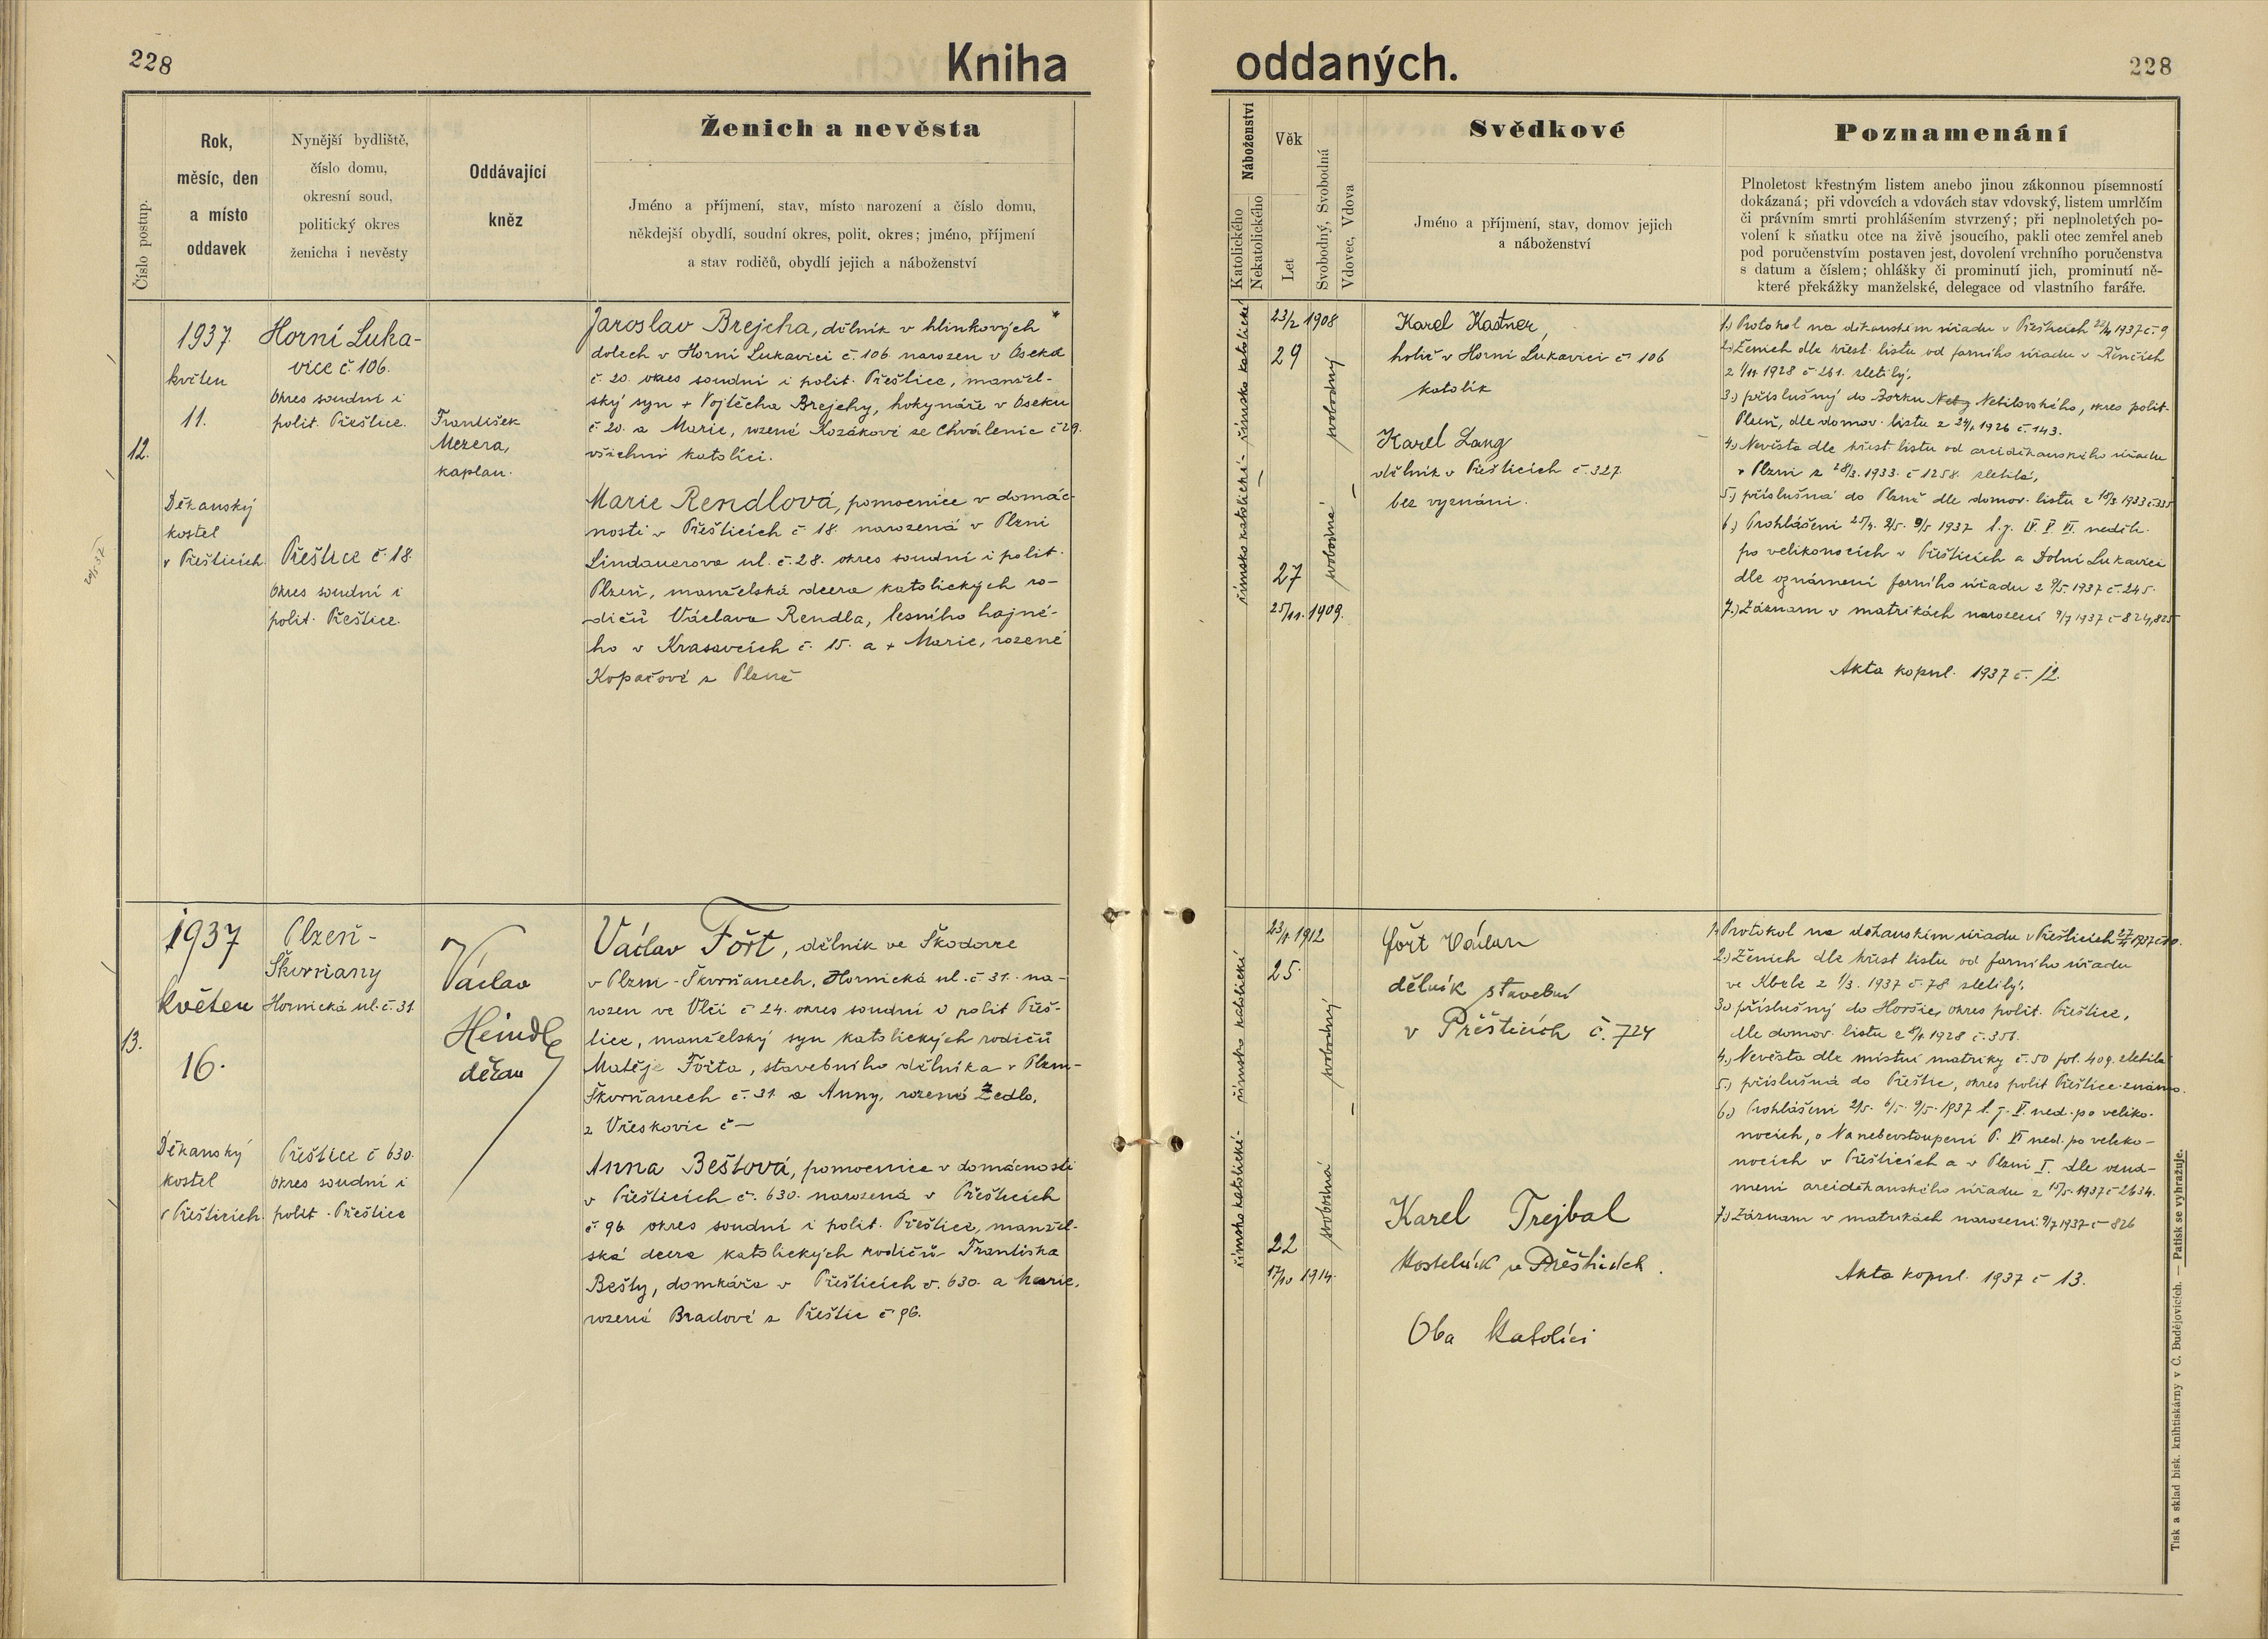 228
Kniha
oddaných.
228
Číslo postup.
Rok,
měsíc, den
a místo
oddavek
Nynější bydliště,
číslo domu,
okresní soud,
politický okres
ženicha i nevěsty
Oddávající
kněz
Ženich a nevěsta
Jméno a příjmení, stav, místo narození a číslo domu,
někdejší obydlí, soudní okres, polit. okres; jméno, příjmení
a stav rodičů, obydlí jejich a náboženství
Náboženství
Katolického
Nekatolického
Věk
Let
Svobodný, Svobodná
Vdovec, Vdova
Svědkové
Jméno a příjmení, stav, domov jejich
a náboženství
Poznamenání
Plnoletost křestným listem anebo jinou zákonnou písemností
dokázaná; při vdovcích a vdovách stav vdovský, listem umrlčím
či právním smrti prohlášením stvrzený; při neplnoletých po-
volení k sňatku otce na živě jsoucího, pakli otec zemřel aneb
pod poručenstvím postaven jest, dovolení vrchního poručenstva
s datum a číslem; ohlášky či prominutí jich, prominutí ně-
které překážky manželské, delegace od vlastního faráře.
12.
1937.
květen
11.
Děkanský
kostel
v Přešticích.
Horní Luka-
vice č 106.
okres soudní i
polit. Přeštice.
Přeštice č 18.
okres soudní i
polit. Přeštice.
František
Mezera,
kaplan.
Jaroslav Brejcha, dělník v hlinkových
dolech v Horní Lukavici č. 106. narozen v Oseku
č. 20. okres soudní i polit. Přeštice, manžel-
ský syn + Vojtěcha Brejchy, hokynáře v Oseku
č 20. a Marie, rozené Kozákové ze Chválenic č 29.
všichni katolíci.
Marie Rendlová, pomocnice v domác-
nosti v Přešticích č 18. narozená v Plzni
Lindauerova ul. č. 28. okres soudní i polit.
Plzeň, manželská dcera katolických ro-
dičů Václava Rendla, lesního hajné-
ho v Krasavcích č. 15. a + Marie, rozené
Kopačové z Plzně
římsko katolické - římsko katolické
23/2 1908
29
27
25/11. 1909.
svobodný
svobodná
Karel Kastner,
holič v Horní Lukavici č 106
katolík
Karel Lang
dělník v Přešticích č. 327.
bez vyznání.
1.) Protokol na děkanském úřadu v Přešticích 22/4 1937 č. 9
2.) Ženich dle křest. listu od farního úřadu v Řenčích
z 1/11. 1928 č 261. zletilý,
3.) příslušný do Zorku Nebílovského, okres polit.
Plzeň, dle domov. listu z 24/1 1926 č. 143.
4.) Nevěsta dle křest. listu od arciděkanského úřadu
v Plzni z 28/3. 1933. č 1258. zletilá,
5.) příslušná do Plzně dle domov. listu z 18/3. 1933 č. 335
6.) Prohlášeni 25/4. 2/5. 9/5 1937 t.j. IV. V. VI. neděli
po velikonocích v Přešticích a Dolní Lukavici
dle oznámení farního úřadu z 9/5. 1937 č. 245.
7.) Záznam v matrikách narození 9/7 1937 č 824, 825
Akta kopul. 1937 č. 12.
13.
1937
květen
16.
Děkanský
kostel
v Přešticích.
Plzeň -
Škvrňany
Hornická ul. č. 31.
Přeštice č 630.
okres soudní i
polit. Přeštice
Václav
Heindl
děkan
Václav Fořt, dělník ve Škodovce
v Plzni - Škvrňanech, Hornická ul. č 31. na-
rozen ve Vlčí č 24. okres soudní i polit Přeš-
tice, manželský syn katolických rodičů
Matěje Fořta, stavebního dělníka v Plzni -
Škvrňanech č. 31 a Anny, rozené Zedlo,
z Vřeskovic č —
Anna Beštová, pomocnice v domácnosti
v Přešticích č. 630. narozená v Přešticích
č 96. okres soudní i polit. Přeštice, manžel-
ská dcera katolických rodičů Františka
Bešty, domkáře v Přešticích č. 630. a Marie,
rozené Bradové z Přeštic č 96.
římsko katolické - římsko katolické
1912
25.
22
17/10 1914.
svobodný
svobodná
Fořt Václav
dělník stavební
v Přešticích č. 724
Karel Trejbal
Kostelník v Přešticích.
Oba katolíci
1.) Protokol na děkanském úřadu v Přešticích 27/4 1937 č 10.
2.) Ženich dle křest listu od farního úřadu
ve Kbele z 1/3. 1937 č. 78 zletilý,
3.) příslušný do Horšic, okres polit. Přeštice,
dle domov. listu 1928 č. 356.
4.) Nevěsta dle místní matriky č. 50 fol. 409. zletilá
5.) příslušná do Přeštic, okres polit Přeštice známo.
6.) Prohlášeni 2/5. 6/5. 9/5. 1937 t. j. V. ned. po veliko-
nocích, o Nanebevstoupení P. VI ned. po veliko-
nocích v Přešticích a v Plzni I. dle
arciděkanského úřadu z 15/5. 1937 č 2634.
7.) Záznam v matrikách narození 9/7 1937 č 826
Akta kopul. 1937 č 13.
Tisk a sklad bisk. knihtiskárny v Č. Budějovicích. — Patisk se vyhražuje.